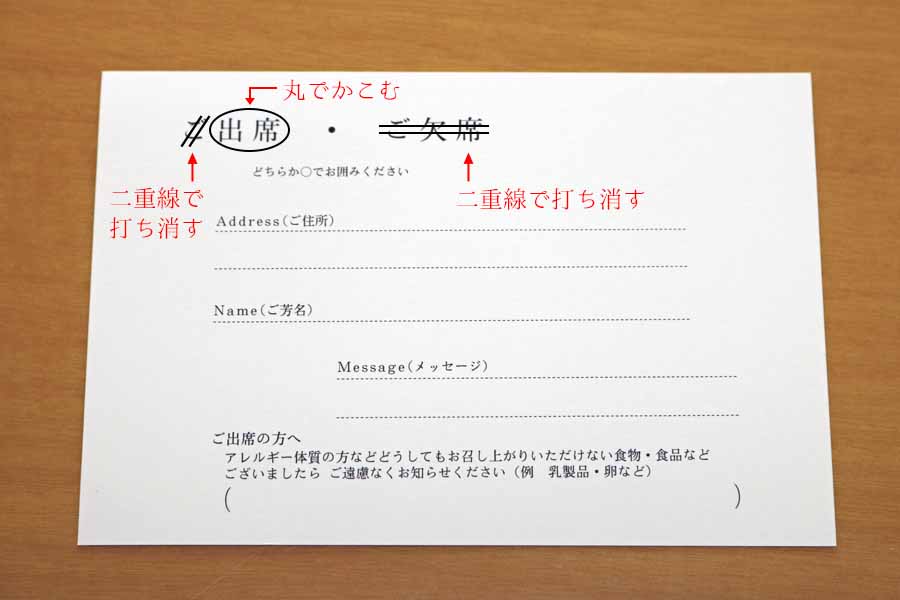 丸でかこむ
ご出席 ・ ご欠席
どちらか○でお囲みください
二重線で
打ち消す
二重線で打ち消す
Address(ご住所)
Name(ご芳名)
Message(メッセージ)
ご出席の方へ
アレルギー体質の方などどうしてもお召し上がりいただけない食物・食品など
ございましたら ご遠慮なくお知らせください(例 乳製品・卵など)
( )